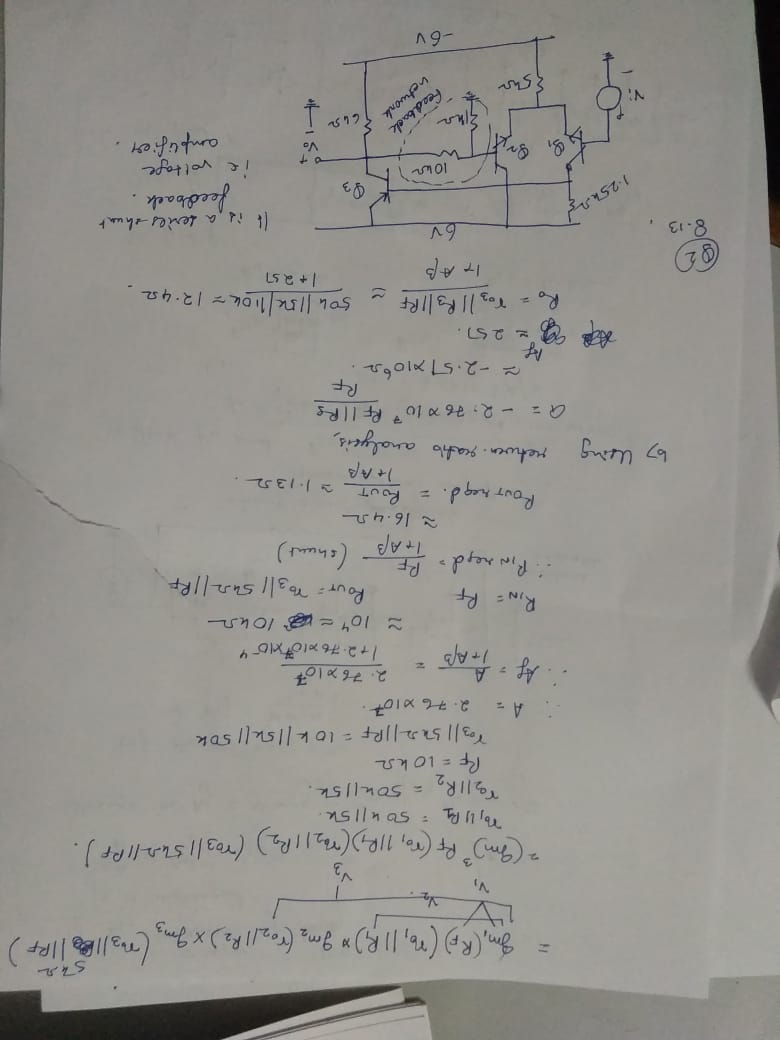 = gm₁(RF)(r₀₁||R₁) × gm₂(r₀₂||R₂) × gm₃(r₀₃||5kΩ||RF)
V₁ V₂ V₃
= (gm)³ RF(r₀₁||R₁)(r₀₂||R₂)(r₀₃||5kΩ||RF).
r₀₁||R₁ = 50k||5k.
r₀₂||R₂ = 50k||5k.
RF = 10kΩ
r₀₃||5kΩ||RF = 10k||5k||50k
∴ A = 2.76×10⁷.
∴ Af = A/(1+Aβ) = 2.76×10⁷/(1+2.76×10⁷×10⁻⁴)
≈ 10⁴ = 10kΩ
RIN = RF ROUT = r₀₃||5kΩ||RF
∴ RIN reqd = RF/(1+Aβ) (shunt)
≈ 16.4Ω
ROUT reqd. = ROUT/(1+Aβ) ≈ 1.13Ω.
b) Using return-ratio analysis,
a = -2.76×10⁷ RF||RS/RF
≈ -2.51×10⁶Ω.
Af ≈ 251.
R₀ = r₀₃||R₃||RF/(1+Aβ) ≈ 50k||5k||10k/(1+251) ≈ 12.4Ω.
Q2
8.13.
6V
1.25kΩ
Q₁
Q₂
Q₃
10kΩ
1kΩ
feedback
network
6kΩ
5kΩ
Vi
+
-
+
Vo
-
-6V
It is a series-shunt
feedback.
ie voltage
amplifier.